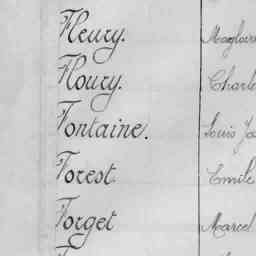 Fleury. Magloire
Floury. Charle
Fontaine. Louis Jo
Forest. Emile
Forget Marcel